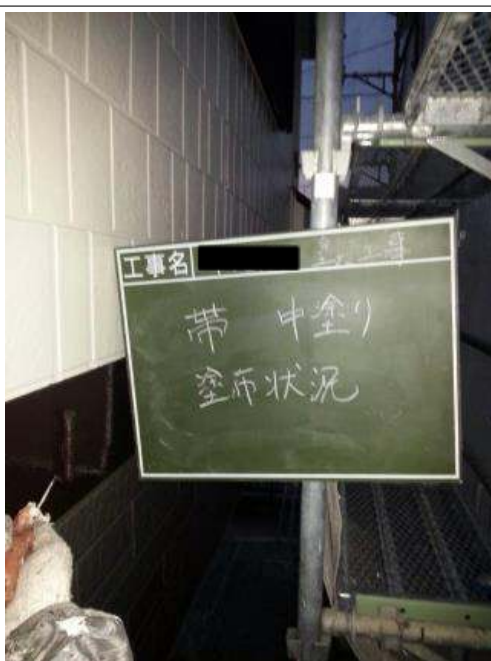 工事名 工事
帯 中塗り
塗布状況